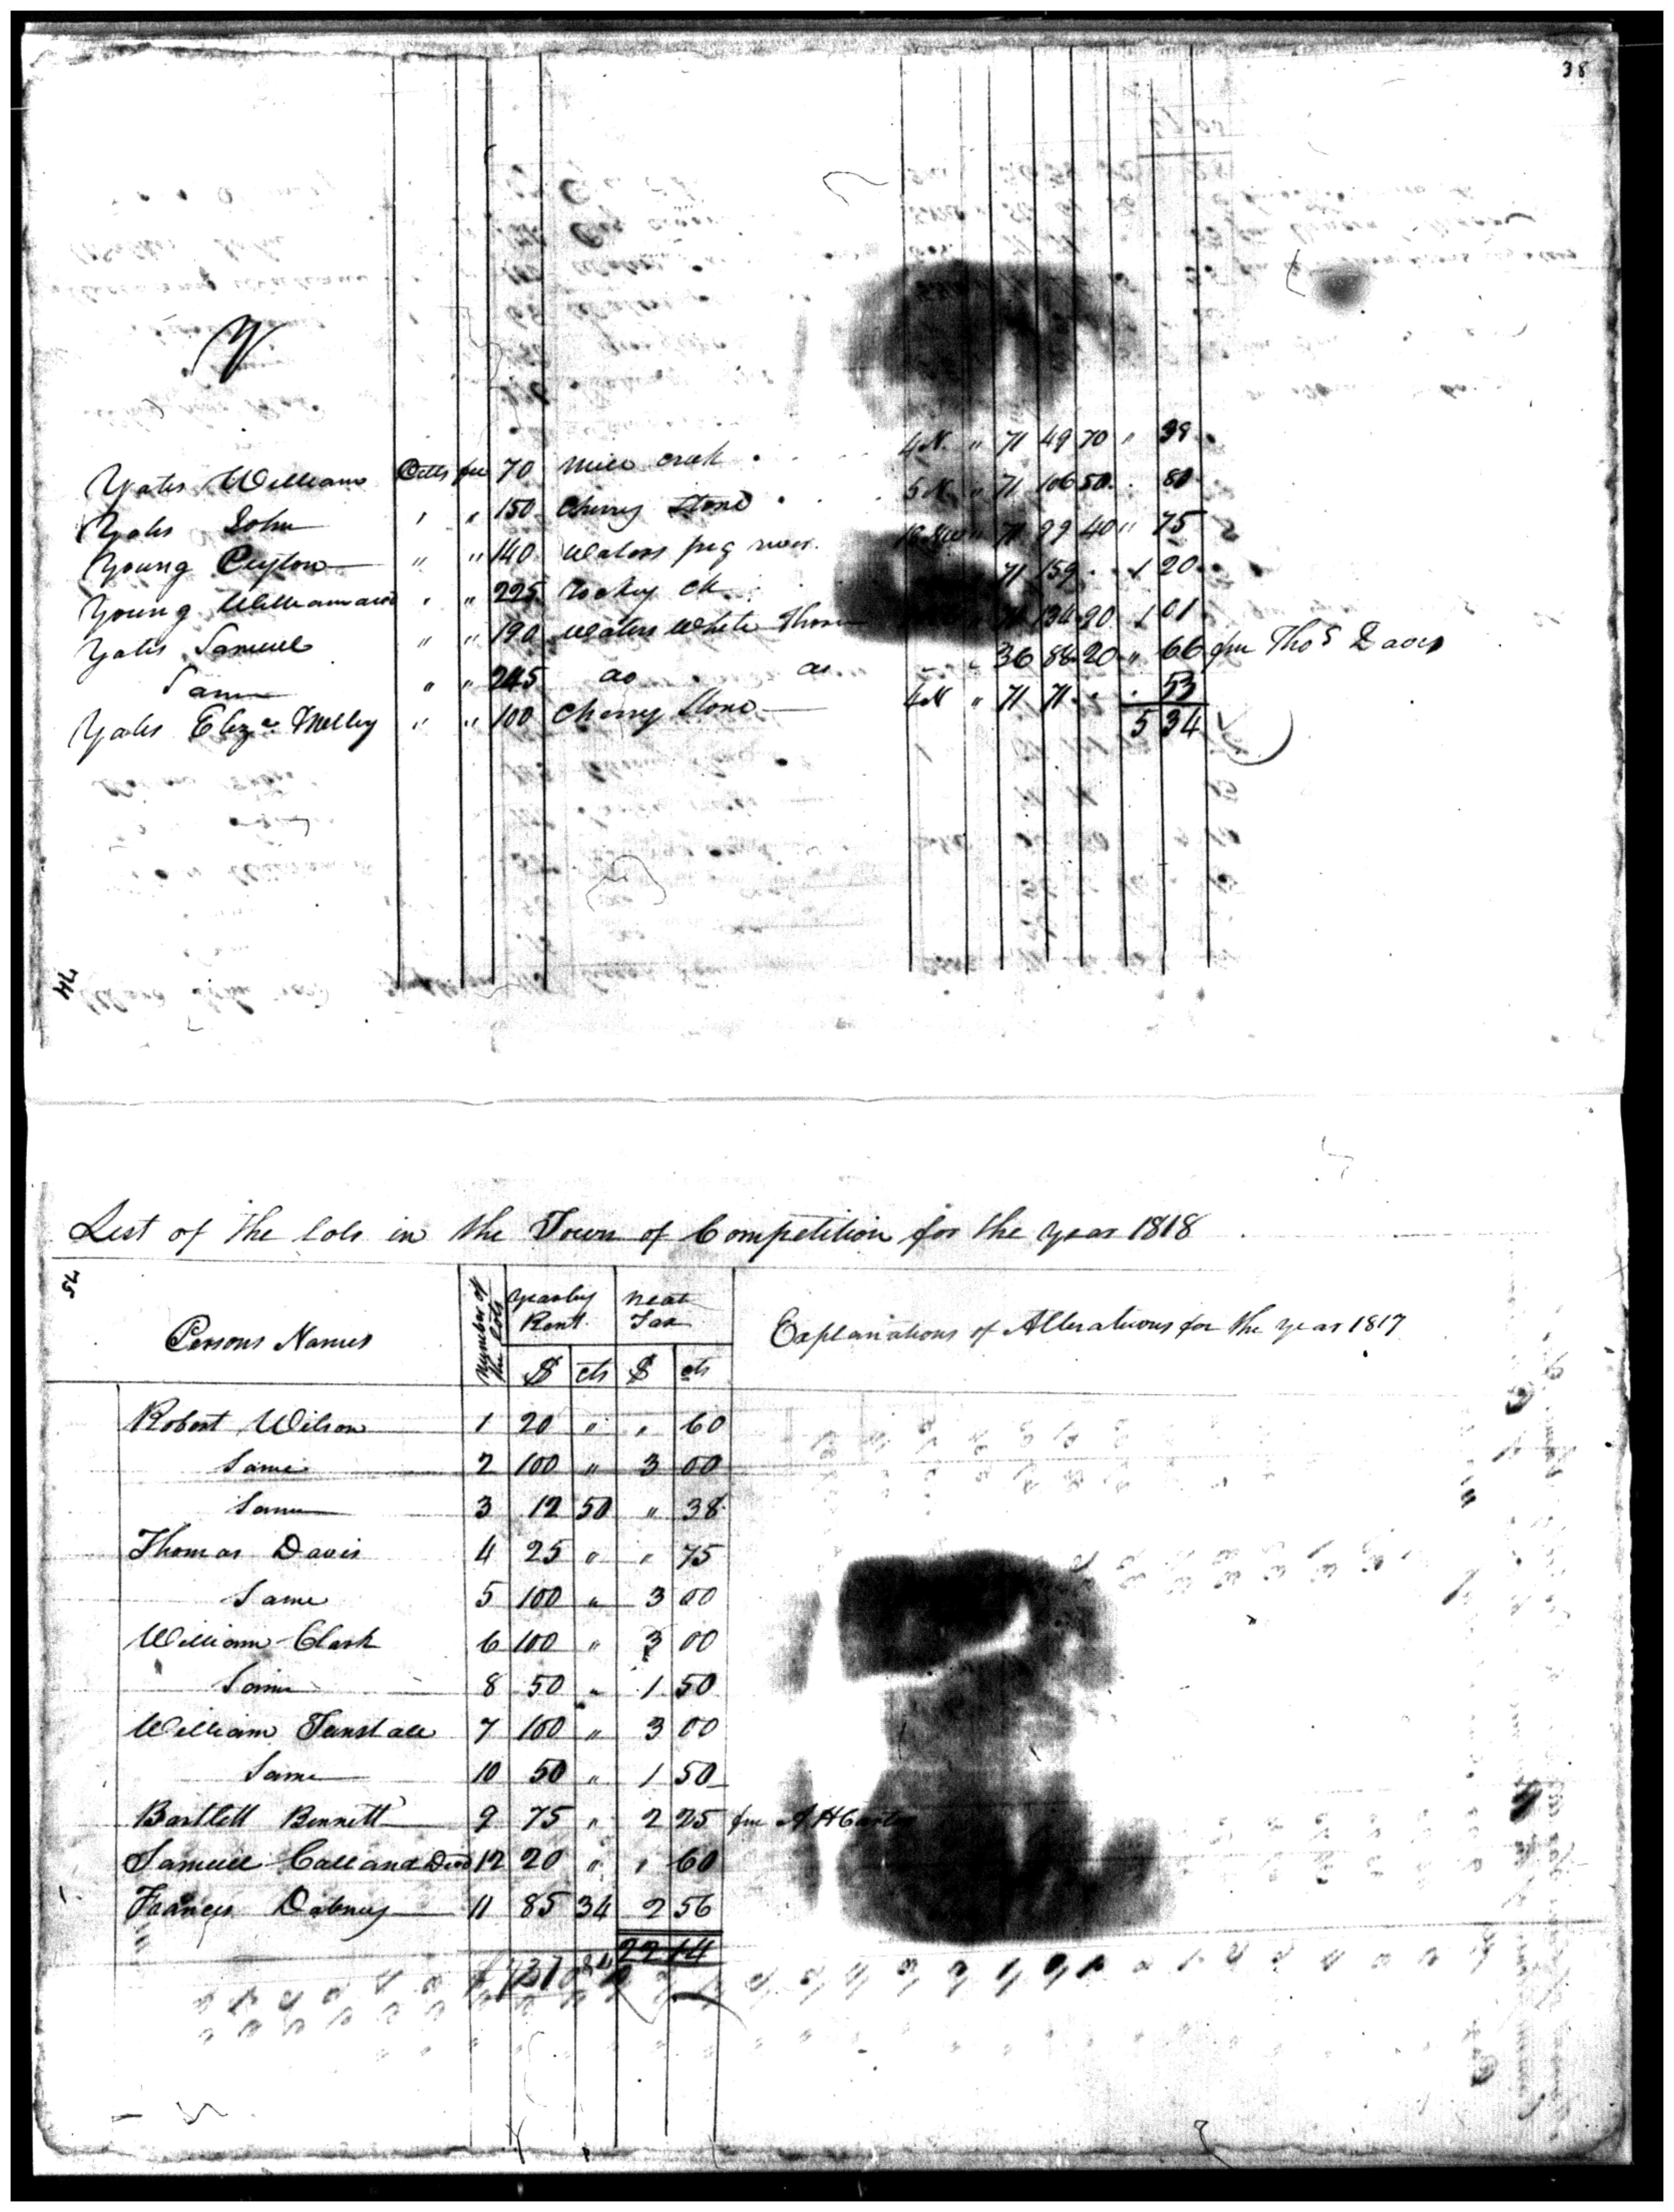 38
Y
Yates William Pitts fee 70 mill creek 4 N. " 71 49 70 " 38
Yates John " " 150 Cherry Stone 5 N " 71 106 50 . 80
Young Peyton " " 140 waters pig river 71 99 40 " 75
Young William " " 225 rocky ck 71 159 . 1 20
Yates Samuel " " 190 waters White Thorn 134 20 1 01
Same " " 245 do do 36 88 20 " 66 fm Thos Davis
Yates Eliz a Melley " " 100 Cherry Stone 4 N " 71 71 . . 53
5 34
74
List of the lots in the Town of Competition for the year 1818
75
Persons Names Number of the lots yearly Rent neat Tax Explanations of Alterations for the year 1817
$ cts $ cts
Robert Wilson 1 20 " " 60
Same 2 100 " 3 00
Same 3 12 50 " 38
Thomas Davis 4 25 " " 75
Same 5 100 " 3 00
William Clark 6 100 " 3 00
Same 8 50 " 1 50
William Tunstall 7 100 " 3 00
Same 10 50 " 1 50
Bartlett Bennett 9 75 " 2 25 fm A H Carter
Samuel Calland Decd 12 20 " " 60
Francis Dabney 11 85 34 2 56
22 14
$737 84